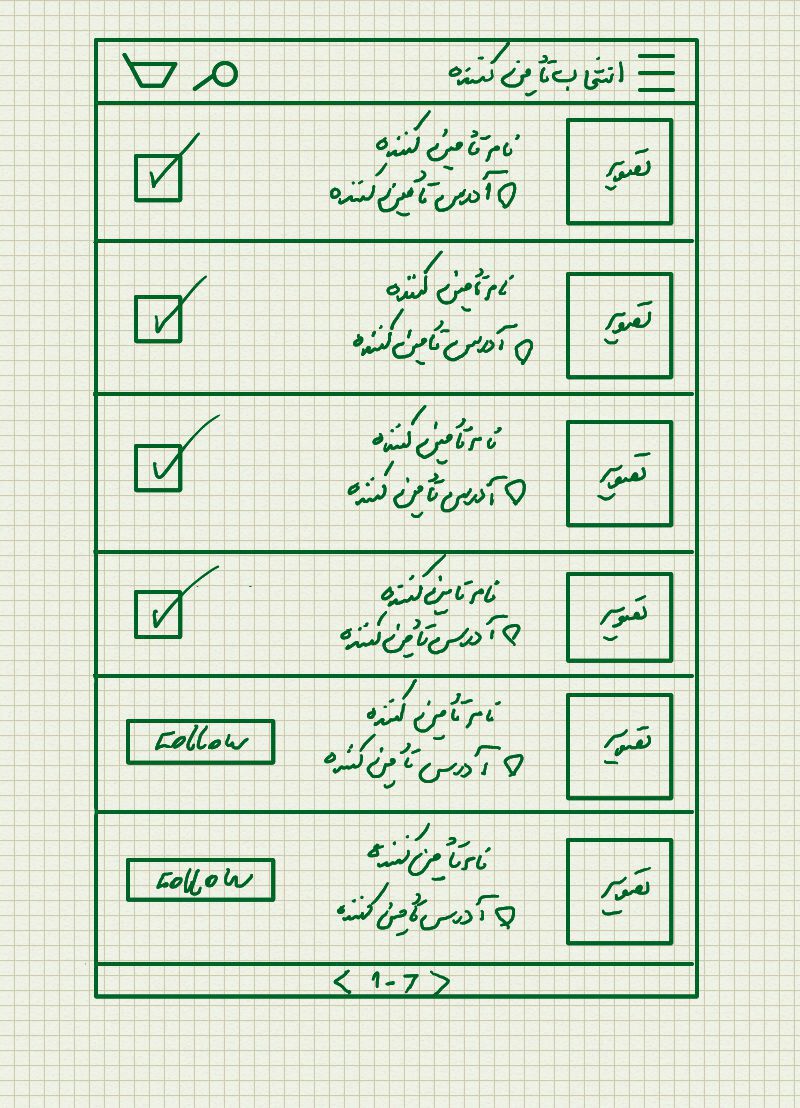 انتخاب تأمین کننده
تصویر
نام تأمین کننده
آدرس تأمین کننده
تصویر
نام تأمین کننده
آدرس تأمین کننده
تصویر
نام تأمین کننده
آدرس تأمین کننده
تصویر
نام تامین کننده
آدرس تأمین کننده
تصویر
نام تأمین کننده
آدرس تأمین کننده
Follow
تصویر
نام تأمین کننده
آدرس تأمین کننده
Follow
< 1-7 >